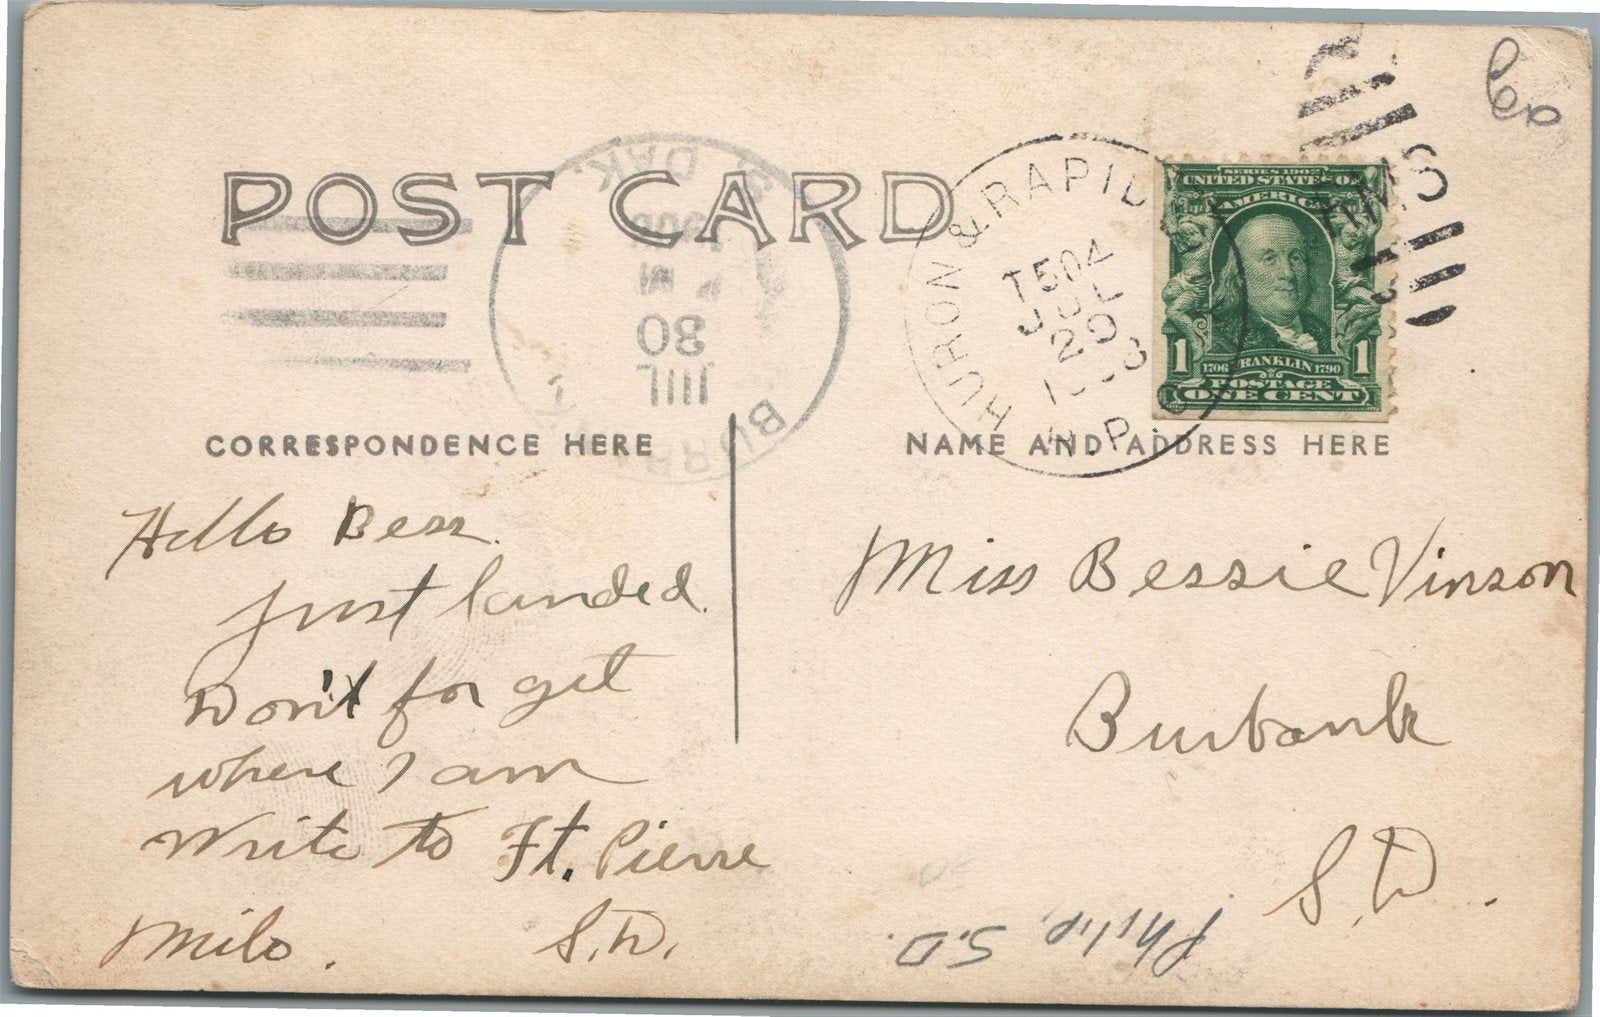 POST CARD
CORRESPONDENCE HERE
Hello Bess.
Just landed.
Don't forget
where I am
Write to Ft. Pierre
S.D.
Milo.
NAME AND ADDRESS HERE
Miss Bessie Vinson
Burbank
S.D.
Philip, S.D.
HURON & RAPID
T504
JUL
29
R.P.O.
RMS
SERIES 1902
UNITED STATES OF
AMERICA
1706 FRANKLIN 1790
1 1
POSTAGE
ONE CENT
S. DAK.
JUL
30